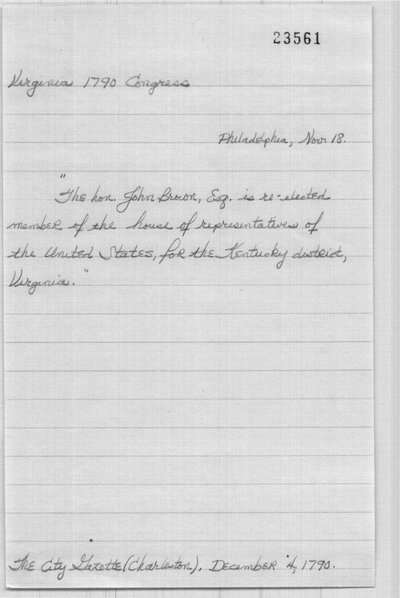 23561
Virginia 1790 Congress
Philadelphia, Nov. 18.
"The hon. John Brown, Esq. is re-elected
member of the house of representatives of
the United States, for the Kentucky district,
Virginia."
The City Gazette (Charleston), December 4, 1790.